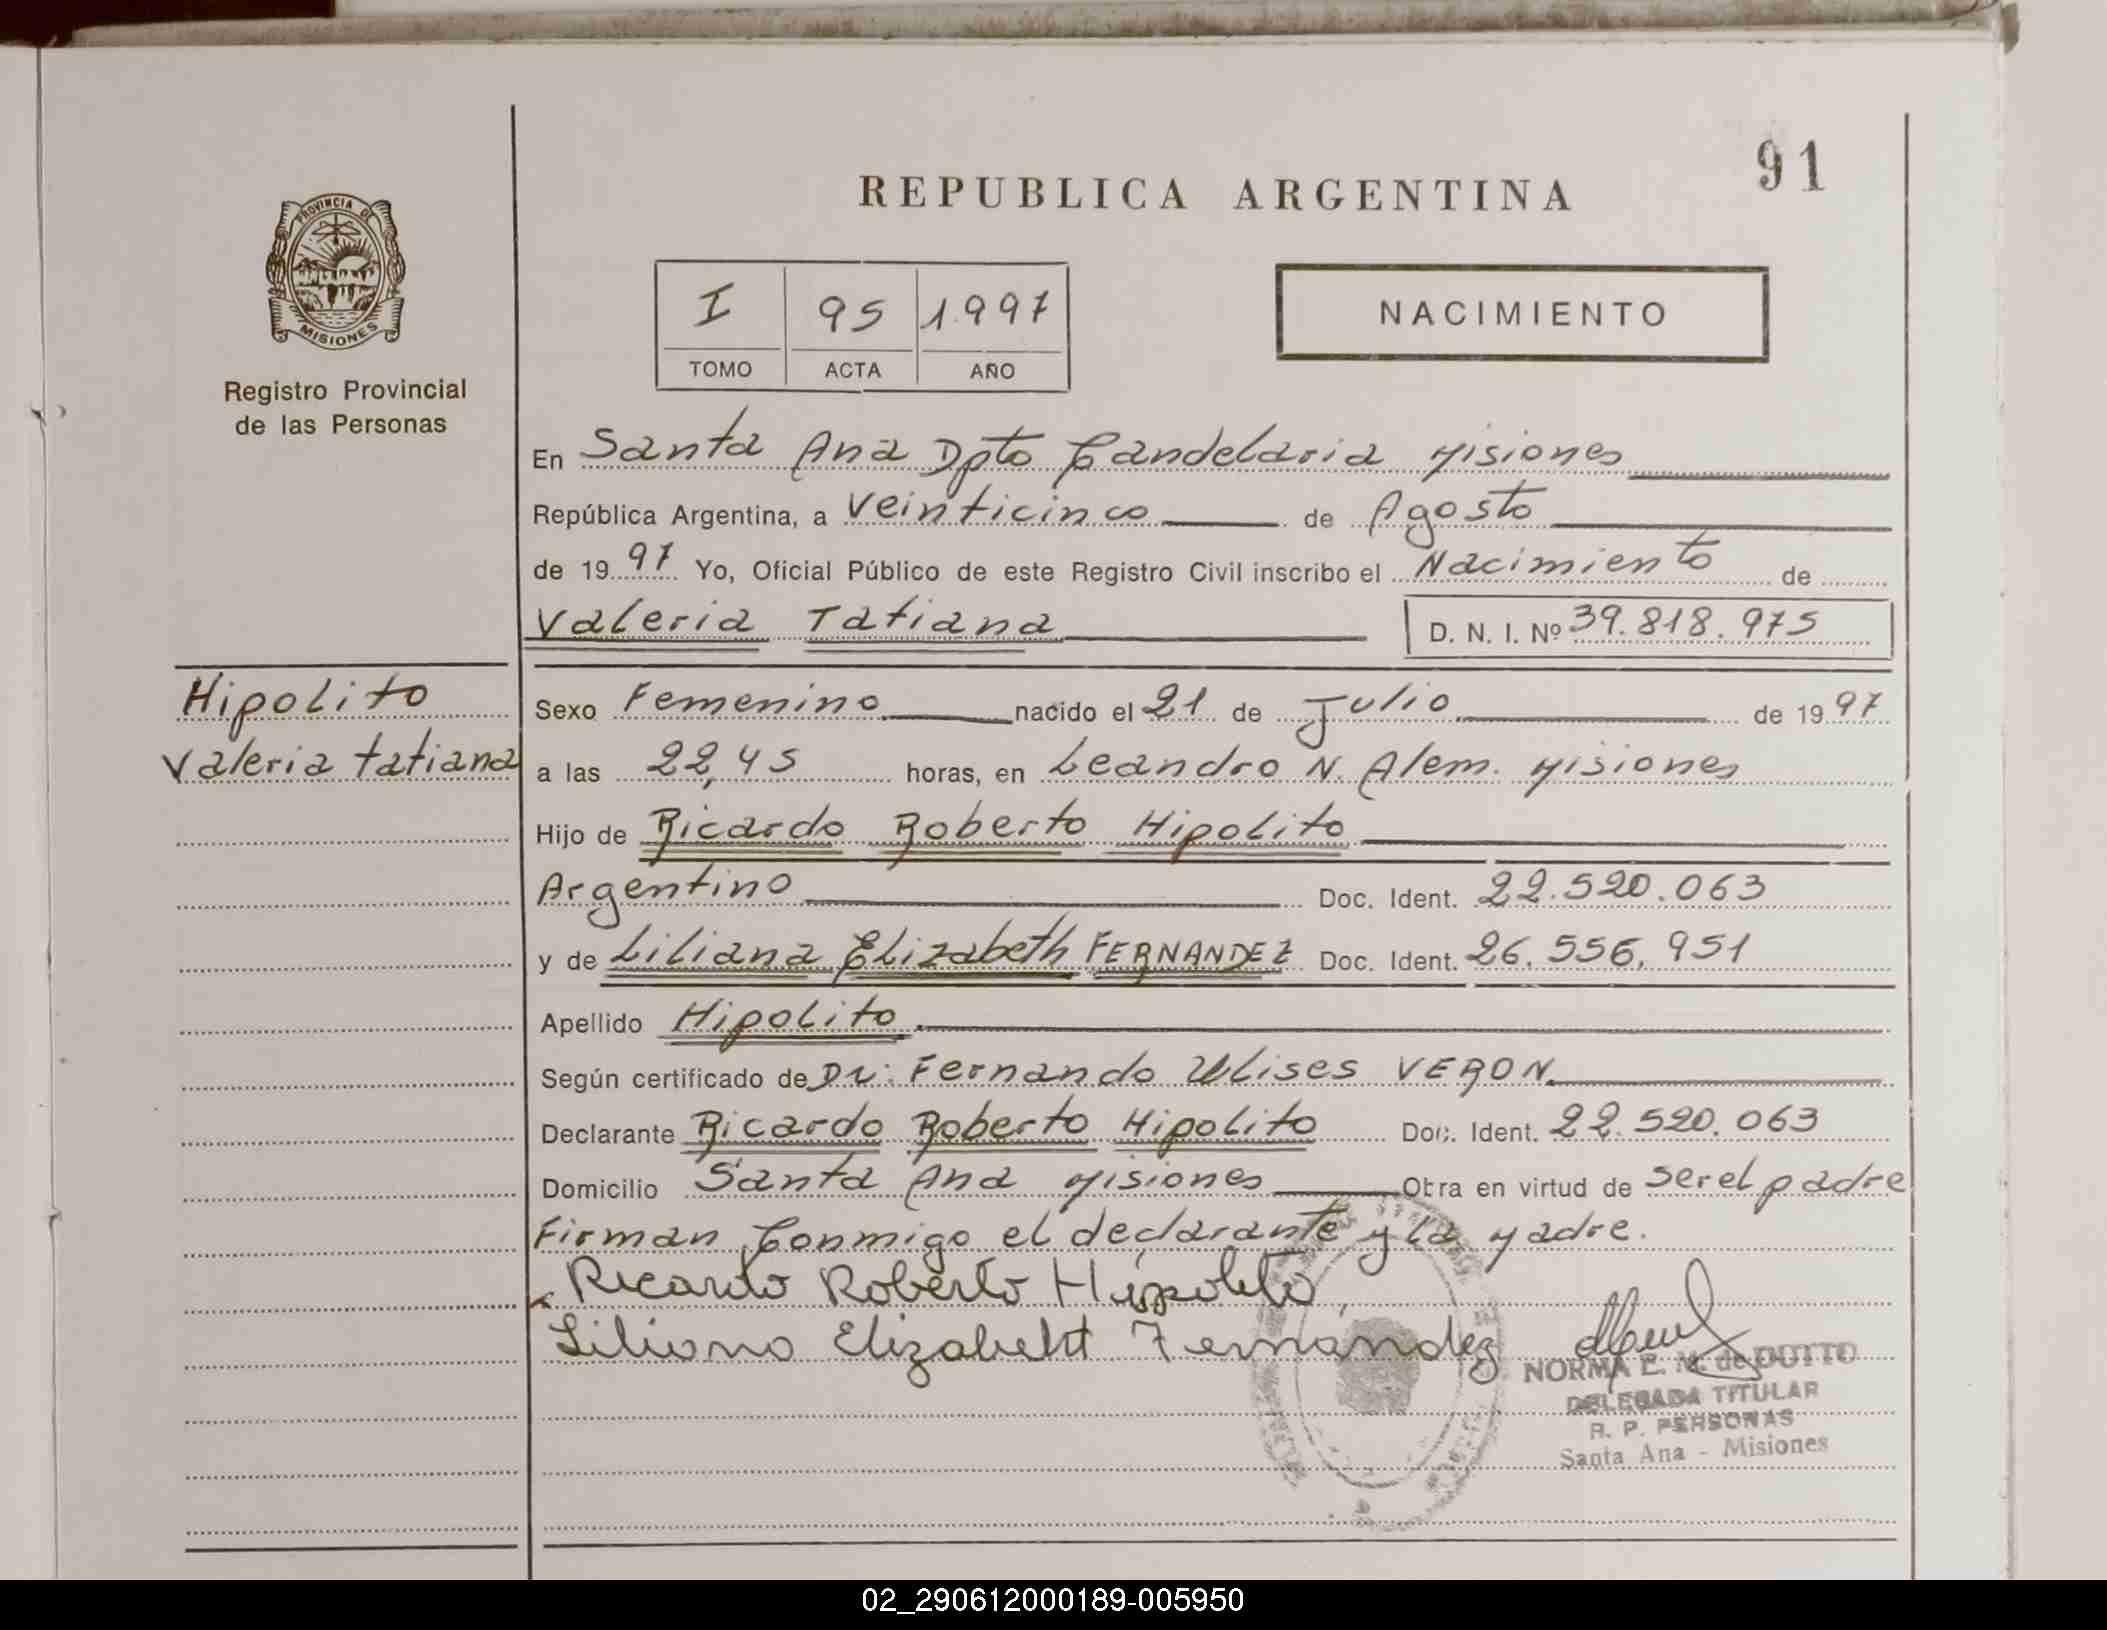 91
REPUBLICA ARGENTINA
PROVINCIA DE
MISIONES
Registro Provincial
de las Personas
I 95 1.997
TOMO ACTA AÑO
NACIMIENTO
En Santa Ana Dpto Candelaria Misiones
República Argentina, a Veinticinco de Agosto
de 1997 Yo, Oficial Público de este Registro Civil inscribo el Nacimiento de
Valeria Tatiana D. N. I. Nº 39.818.975
Hipolito
Valeria tatiana
Sexo Femenino nacido el 21 de Julio de 1997
a las 22,45 horas, en Leandro N. Alem. Misiones
Hijo de Ricardo Roberto Hipolito
Argentino Doc. Ident. 22.520.063
y de Liliana Elizabeth FERNANDEZ Doc. Ident. 26.556.951
Apellido Hipolito
Según certificado de Dr: Fernando Ulises VERON
Declarante Ricardo Roberto Hipolito Doc. Ident. 22.520.063
Domicilio Santa Ana Misiones Obra en virtud de ser el padre
Firman Conmigo el declarante y la Madre.
Ricardo Roberto Hipolito
Liliana Elizabeht Fernández
NORMA E. M. de DUTTO
DELEGADA TITULAR
R. P. PERSONAS
Santa Ana - Misiones
02_290612000189-005950